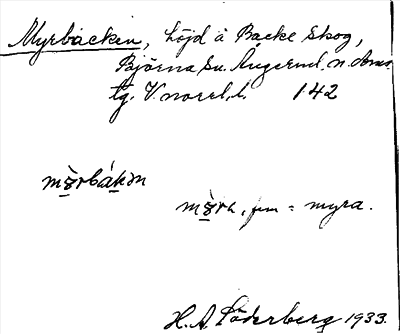 Myrbäcken, höjd å Backe skog,
Björna sn. Ångerml. n. doms.
tg. V. norrl. l. 142
mörbákɐn
mörh, fem = myra.
H. A. Söderberg 1933.